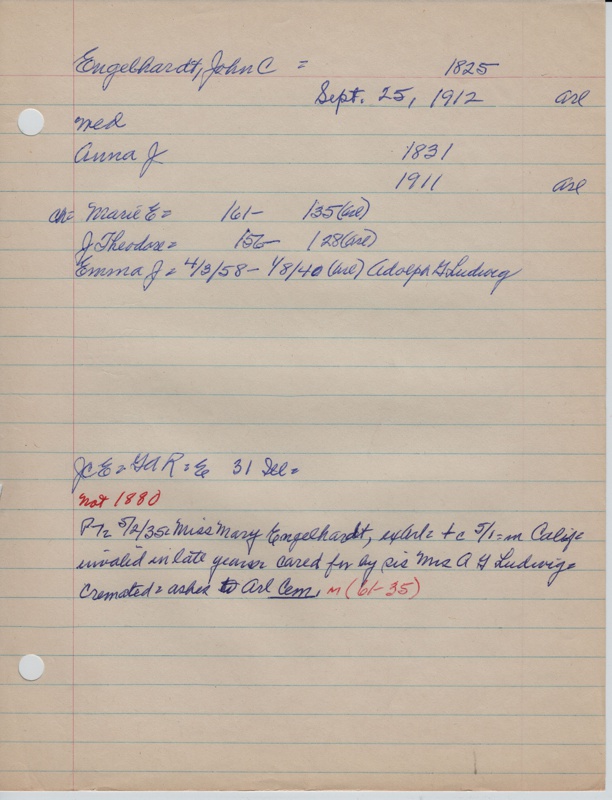 Engelhardt, John C = 1825
Sept. 25, 1912 Arl
med
Anna J 1831
1911 Arl
ch= Marie E= /61- /35(Arl)
J Theodore= /56- /28(Arl)
Emma J= 4/3/58- 1/8/40 (Arl) Adolph G Ludwig
JCE= GAR= Co 31 Del=
not 1880
P-72 5/2/35= Miss Mary Engelhardt, exArl= + c 5/1= in Calif=
invalid in late years cared for by sis Mrs A G Ludwig=
Cremated= ashes to Arl Cem. M (61-35)